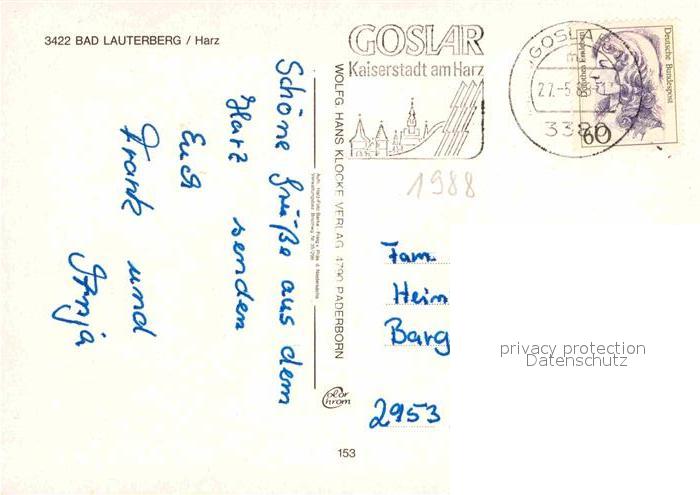 3422 BAD LAUTERBERG / Harz
Schöne Grüße aus dem
Harz senden
Euch
Frank und
WOLFG. HANS KLOCKE VERLAG 4790 PADERBORN
color
chrom
153
GOSLAR
Kaiserstadt am Harz
GOSLA
27.-5.
3380
Deutsche Bundespost
60
1988
Fam.
Hein
Barg
2953
privacy protection
Datenschutz